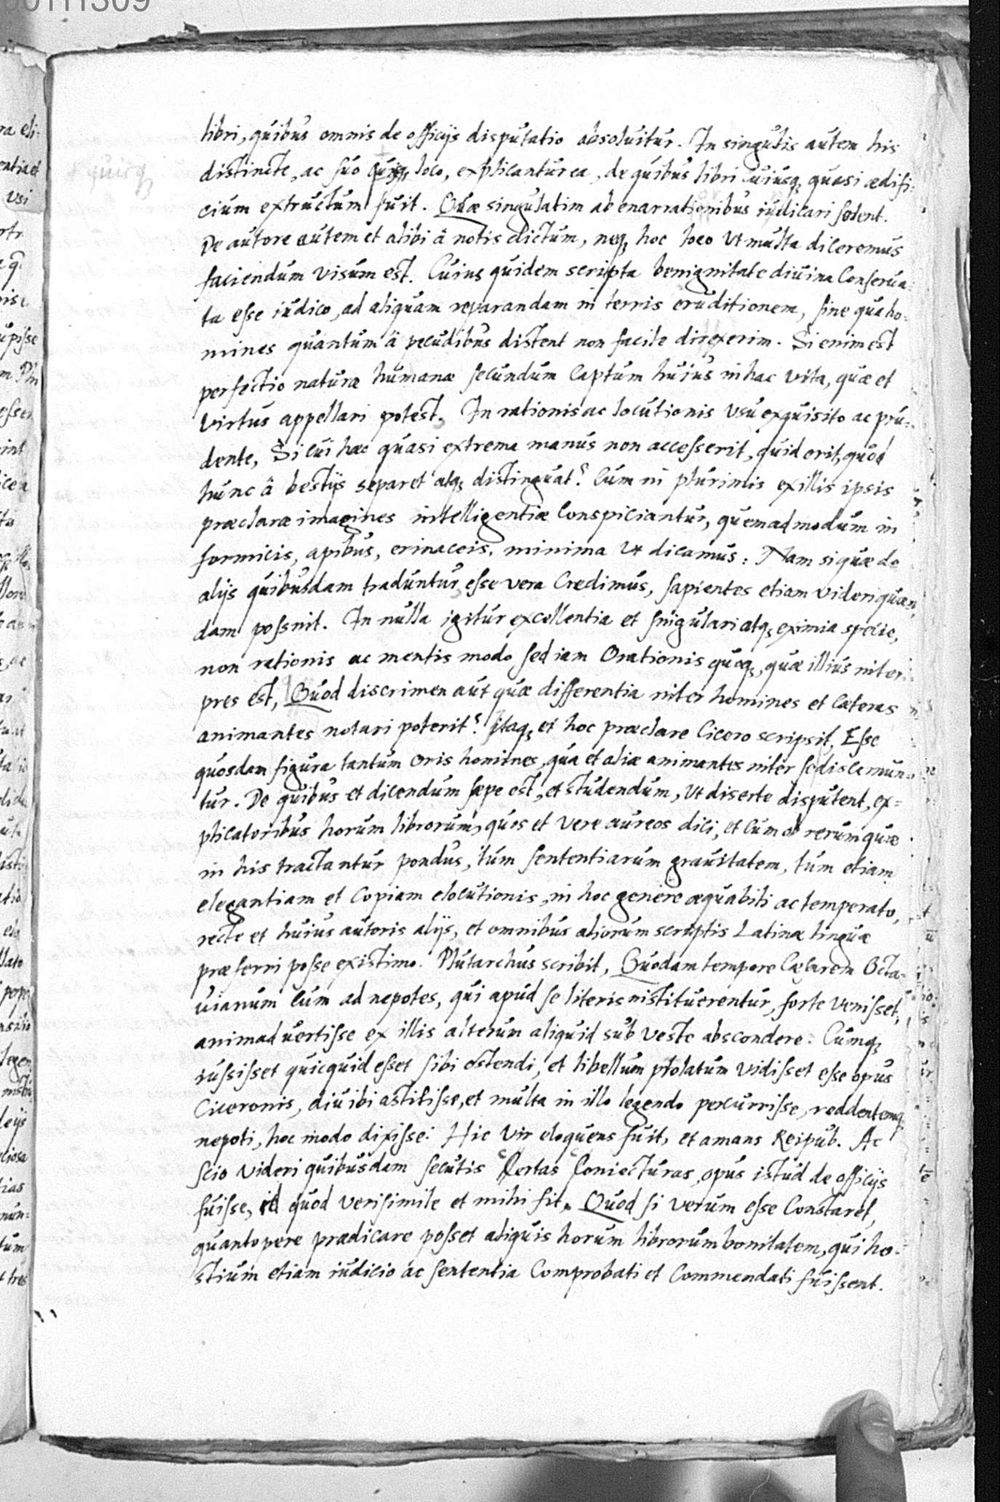 00111309
libri, quibus omnis de officijs disputatio absoluitur. In singulis autem his
distincte, ac suo quiq; loco, explicantur ea, de quibus libri cuiusq; quasi ædifi-
cium extructum fuit. Quæ singulatim ab enarrationibus iudicari solent.
De autore autem et alibi â nobis dictum, neq; hoc loco ut multa diceremus
faciendum visum est. Cuius quidem scripta benignitate diuina conserua-
ta esse iudico, ad aliquam reparandam in terris eruditionem, sine qua ho-
mines quantum â pecudibus distent non facile dixerim. Si enim est
perfectio naturæ humanæ secundum captum huius in hac vita, quæ et
virtus appellari potest, In rationis ac locutionis usu exquisito ac pru-
dente, Si cui hæc quasi extrema manus non accesserit, quid erit, quod
hunc â bestijs separet atq; distinguat? Cum in plurimis ex illis ipsis
præclaræ imagines intelligentiæ conspiciantur, quemadmodum in
formicis, apibus, erinaceis, minima ut dicamus: Nam si quæ de
alijs quibusdam traduntur, esse vera credimus, sapientes etiam videri quæ-
dam possint. In nulla igitur excellentia et singulari atq; eximia specie,
non rationis ac mentis modo sed iam orationis quoq;, quæ illius inter-
pres est, Quod discrimen aut quæ differentia inter homines et cæteras
animantes notari poterit? Itaq; et hoc præclare Cicero scripsit, Esse
quosdam figura tantum oris homines, qua et aliæ animantes inter se discernun-
tur. De quibus et dicendum sæpe est, et studendum, ut diserte disputent, ex-
plicatoribus horum librorum, quos et vere aureos dici, et cum ob rerum quæ
in his tractantur pondus, tum sententiarum grauitatem, tum etiam
elegantiam et copiam elocutionis, in hoc genere æquabili ac temperato,
recte et huius autoris alijs, et omnibus aliorum scriptis Latinæ linguæ
præferri posse existimo. Plutarchus scribit, Quodam tempore Cæsarem Octa-
uianum cum ad nepotes, qui apud se literis instituerentur, forte venisset,
animaduertisse ex illis alterum aliquid sub veste abscondere: Cumq;
iussisset quicquid esset sibi ostendi, et libellum prolatum vidisset esse opus
Ciceronis, diu ibi astitisse, et multa in illo legendo percurrisse, reddentemq;
nepoti, hoc modo dixisse: Hic vir eloquens fuit, et amans Reipub. Ac
scio videri quibusdam secutis certas coniecturas, opus istud de officijs
fuisse, id quod verisimile et mihi fit. Quod si verum esse constaret,
quantopere prædicare posset aliquis horum librorum bonitatem, qui ho-
stium etiam iudicio ac sententia comprobati et commendati fuissent.